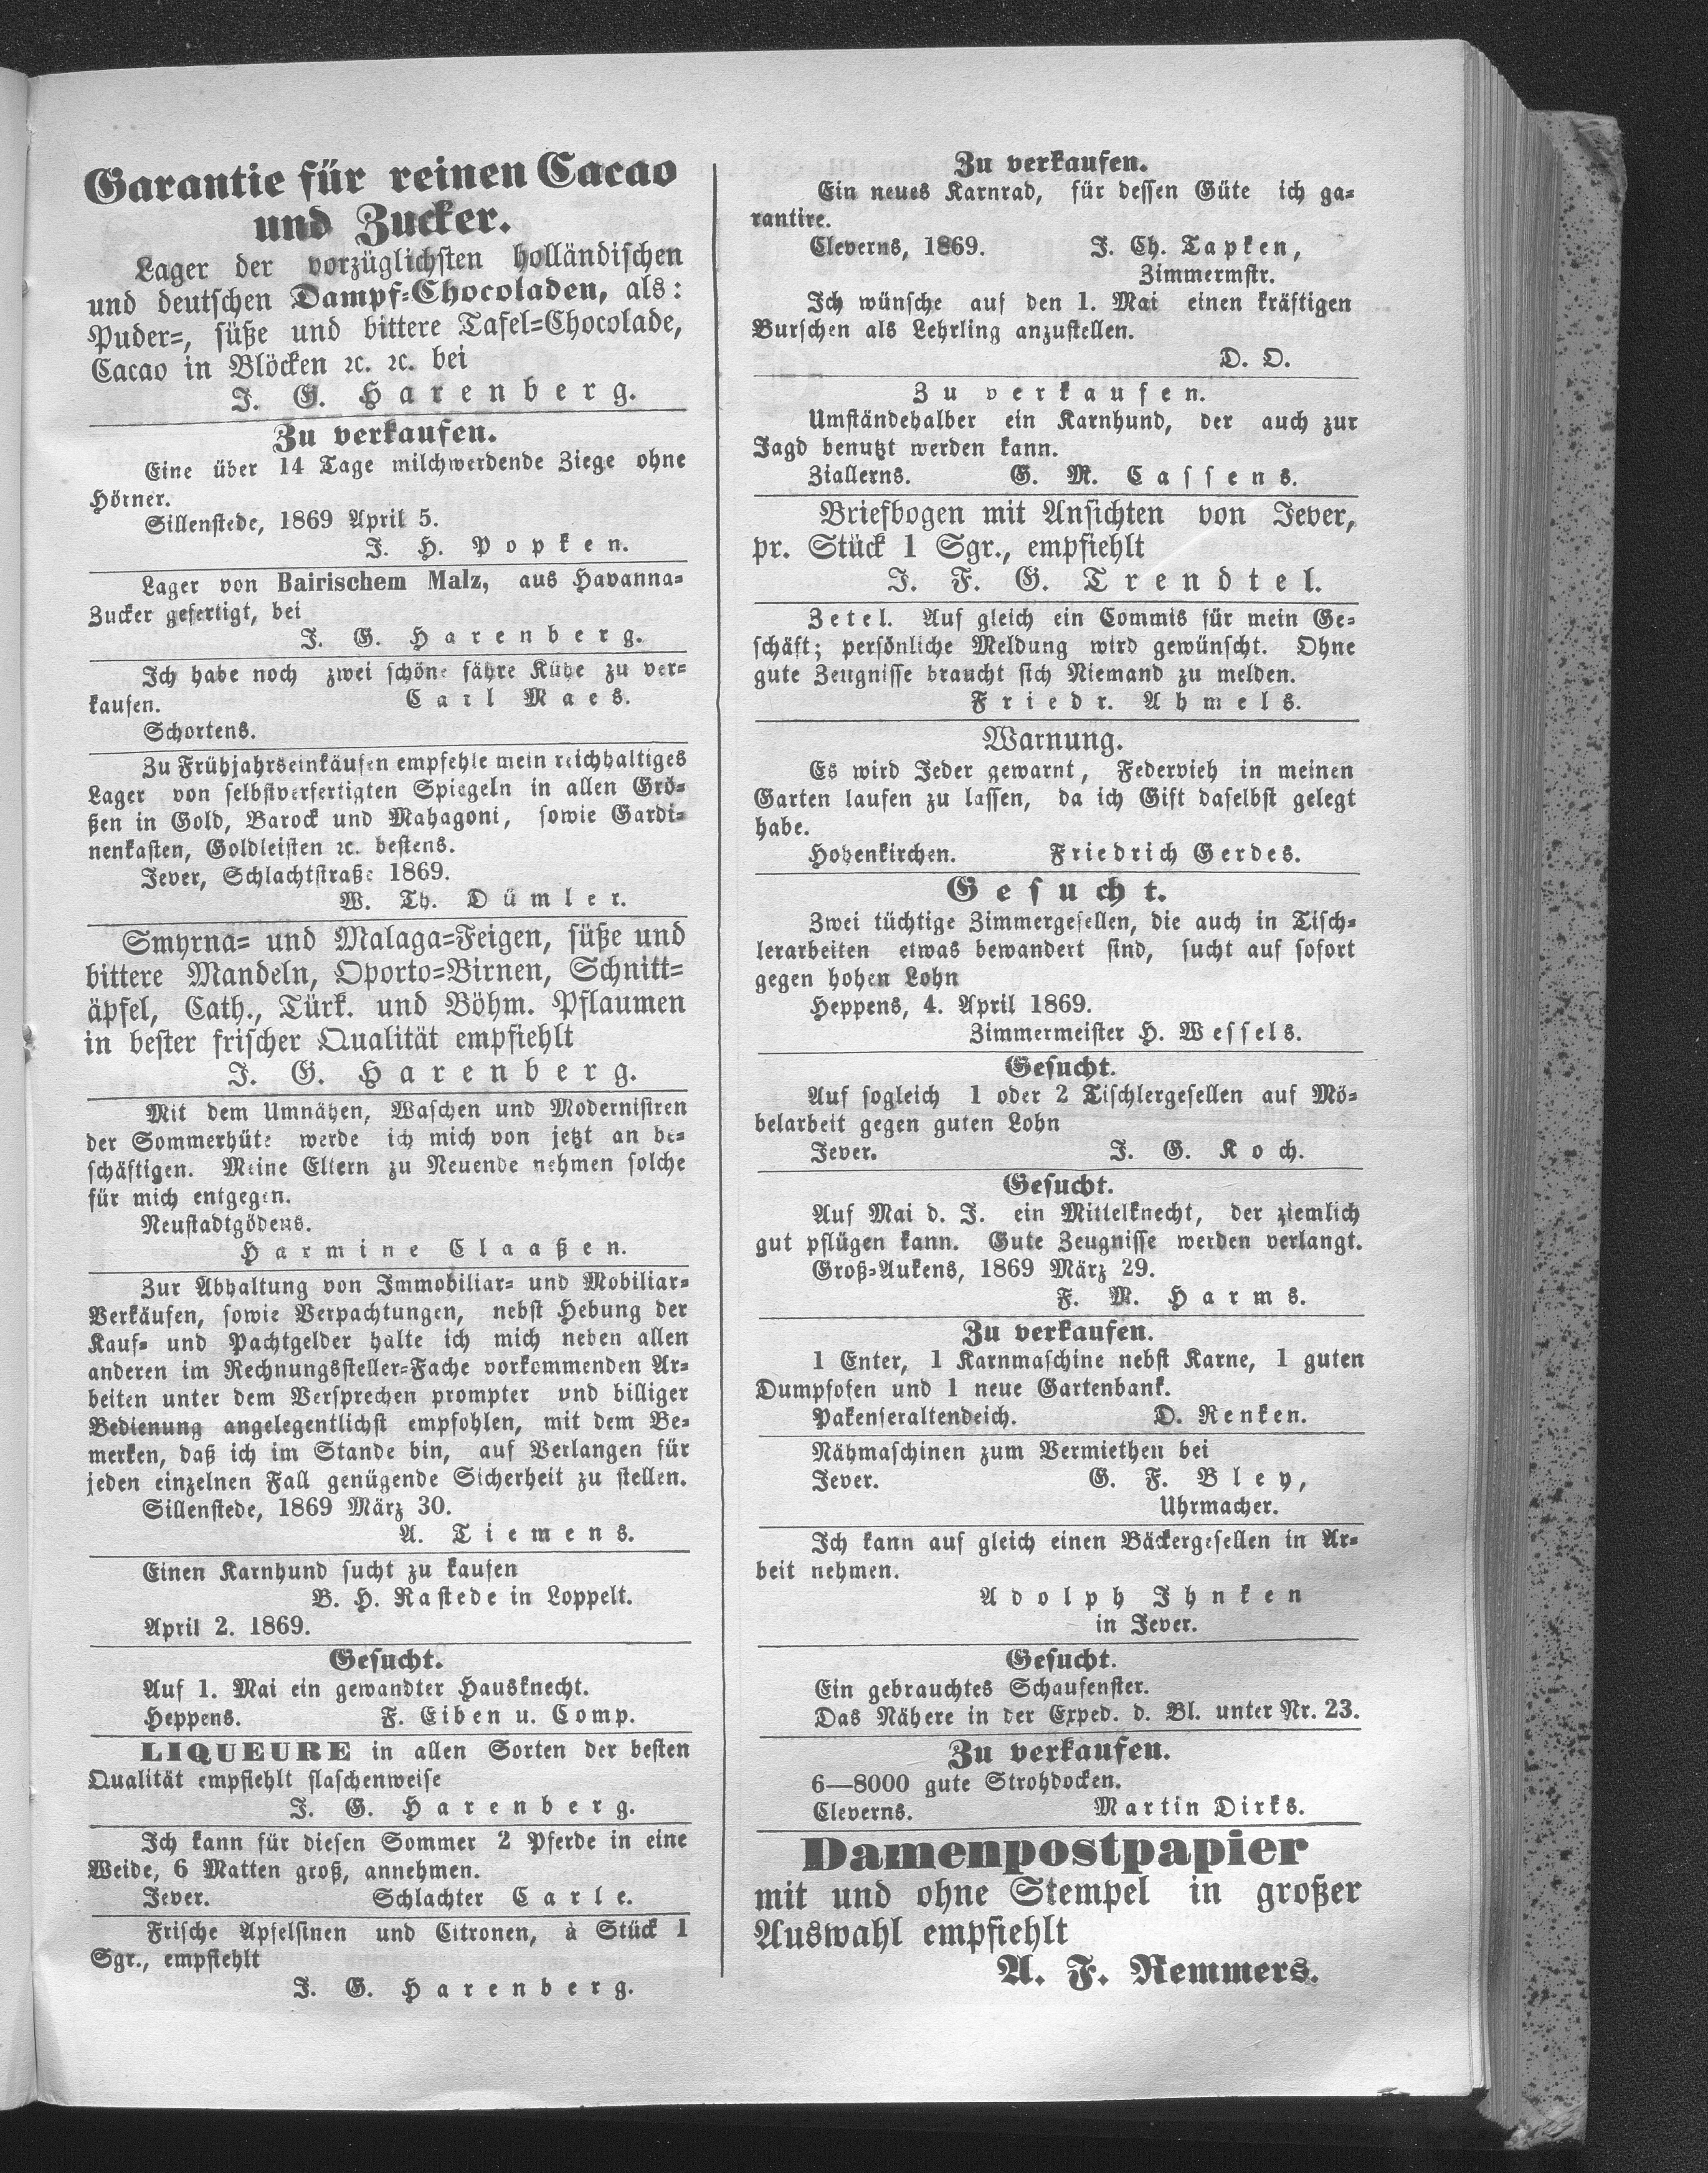 Garantie für reinen Cacao
und Zucker.
Lager der vorzüglichsten holländischen
und deutschen Dampf-Chocoladen, als:
Puder-, süße und bittere Tafel-Chocolade,
Cacao in Blöcken ꝛc. ꝛc. bei
J. G. Harenberg.
Zu verkaufen.
Eine über 14 Tage milchwerdende Ziege ohne
Hörner.
Sillenstede, 1869 April 5.
J. H. Popken.
Lager von Bairischem Malz, aus Havanna-
Zucker gefertigt, bei
J. G. Harenberg.
Ich habe noch zwei schöne fähre Kühe zu ver-
kaufen. Carl Maes.
Schortens.
Zu Frühjahrseinkäufen empfehle mein reichhaltiges
Lager von selbstverfertigten Spiegeln in allen Grö-
ßen in Gold, Barock und Mahagoni, sowie Gardi-
nenkasten, Goldleisten ꝛc. bestens.
Jever, Schlachtstraße 1869.
W. Th. Dümler.
Smyrna- und Malaga-Feigen, süße und
bittere Mandeln, Oporto-Birnen, Schnitt-
äpfel, Cath., Türk. und Böhm. Pflaumen
in bester frischer Qualität empfiehlt
J. G. Harenberg.
Mit dem Umnähen, Waschen und Modernisiren
der Sommerhüte werde ich mich von jetzt an be-
schäftigen. Meine Eltern zu Neuende nehmen solche
für mich entgegen.
Neustadtgödens.
Harmine Claaßen.
Zur Abhaltung von Immobiliar- und Mobiliar-
Verkäufen, sowie Verpachtungen, nebst Hebung der
Kauf- und Pachtgelder halte ich mich neben allen
anderen im Rechnungssteller-Fache vorkommenden Ar-
beiten unter dem Versprechen prompter und billiger
Bedienung angelegentlichst empfohlen, mit dem Be-
merken, daß ich im Stande bin, auf Verlangen für
jeden einzelnen Fall genügende Sicherheit zu stellen.
Sillenstede, 1869 März 30.
A. Tiemens.
Einen Karnhund sucht zu kaufen
B. H. Rastede in Loppelt.
April 2. 1869.
Gesucht.
Auf 1. Mai ein gewandter Hausknecht.
Heppens. F. Eiben u. Comp.
LIQUEURE in allen Sorten der besten
Qualität empfiehlt flaschenweise
J. G. Harenberg.
Ich kann für diesen Sommer 2 Pferde in eine
Weide, 6 Matten groß, annehmen.
Jever. Schlachter Carle.
Frische Apfelsinen und Citronen, à Stück 1
Sgr., empfiehlt
J. G. Harenberg.
Zu verkaufen.
Ein neues Karnrad, für dessen Güte ich ga-
rantire.
Cleverns, 1869. J. Ch. Tapken,
Zimmermstr.
Ich wünsche auf den 1. Mai einen kräftigen
Burschen als Lehrling anzustellen.
D. O.
Zu verkaufen.
Umständehalber ein Karnhund, der auch zur
Jagd benutzt werden kann.
Ziallerns. G. M. Cassens.
Briefbogen mit Ansichten von Jever,
pr. Stück 1 Sgr., empfiehlt
J. F. G. Trendtel.
Zetel. Auf gleich ein Commis für mein Ge-
schäft; persönliche Meldung wird gewünscht. Ohne
gute Zeugnisse braucht sich Niemand zu melden.
Friedr. Ahmels.
Warnung.
Es wird Jeder gewarnt, Federvieh in meinen
Garten laufen zu lassen, da ich Gift daselbst gelegt
habe.
Hohenkirchen. Friedrich Gerdes.
Gesucht.
Zwei tüchtige Zimmergesellen, die auch in Tisch-
lerarbeiten etwas bewandert sind, sucht auf sofort
gegen hohen Lohn
Heppens, 4. April 1869.
Zimmermeister H. Wessels.
Gesucht.
Auf sogleich 1 oder 2 Tischlergesellen auf Mö-
belarbeit gegen guten Lohn
Jever. J. G. Koch.
Gesucht.
Auf Mai d. J. ein Mittelknecht, der ziemlich
gut pflügen kann. Gute Zeugnisse werden verlangt.
Groß-Aukens, 1869 März 29.
F. M. Harms.
Zu verkaufen.
1 Enter, 1 Karnmaschine nebst Karne, 1 guten
Dumpfofen und 1 neue Gartenbank.
Pakenseraltendeich. D. Renken.
Nähmaschinen zum Vermiethen bei
Jever. G. F. Bley,
Uhrmacher.
Ich kann auf gleich einen Bäckergesellen in Ar-
beit nehmen.
Adolph Ihnken
in Jever.
Gesucht.
Ein gebrauchtes Schaufenster.
Das Nähere in der Exped. d. Bl. unter Nr. 23.
Zu verkaufen.
6—8000 gute Strohdocken.
Cleverns. Martin Dirks.
Damenpostpapier
mit und ohne Stempel in großer
Auswahl empfiehlt
A. F. Remmers.